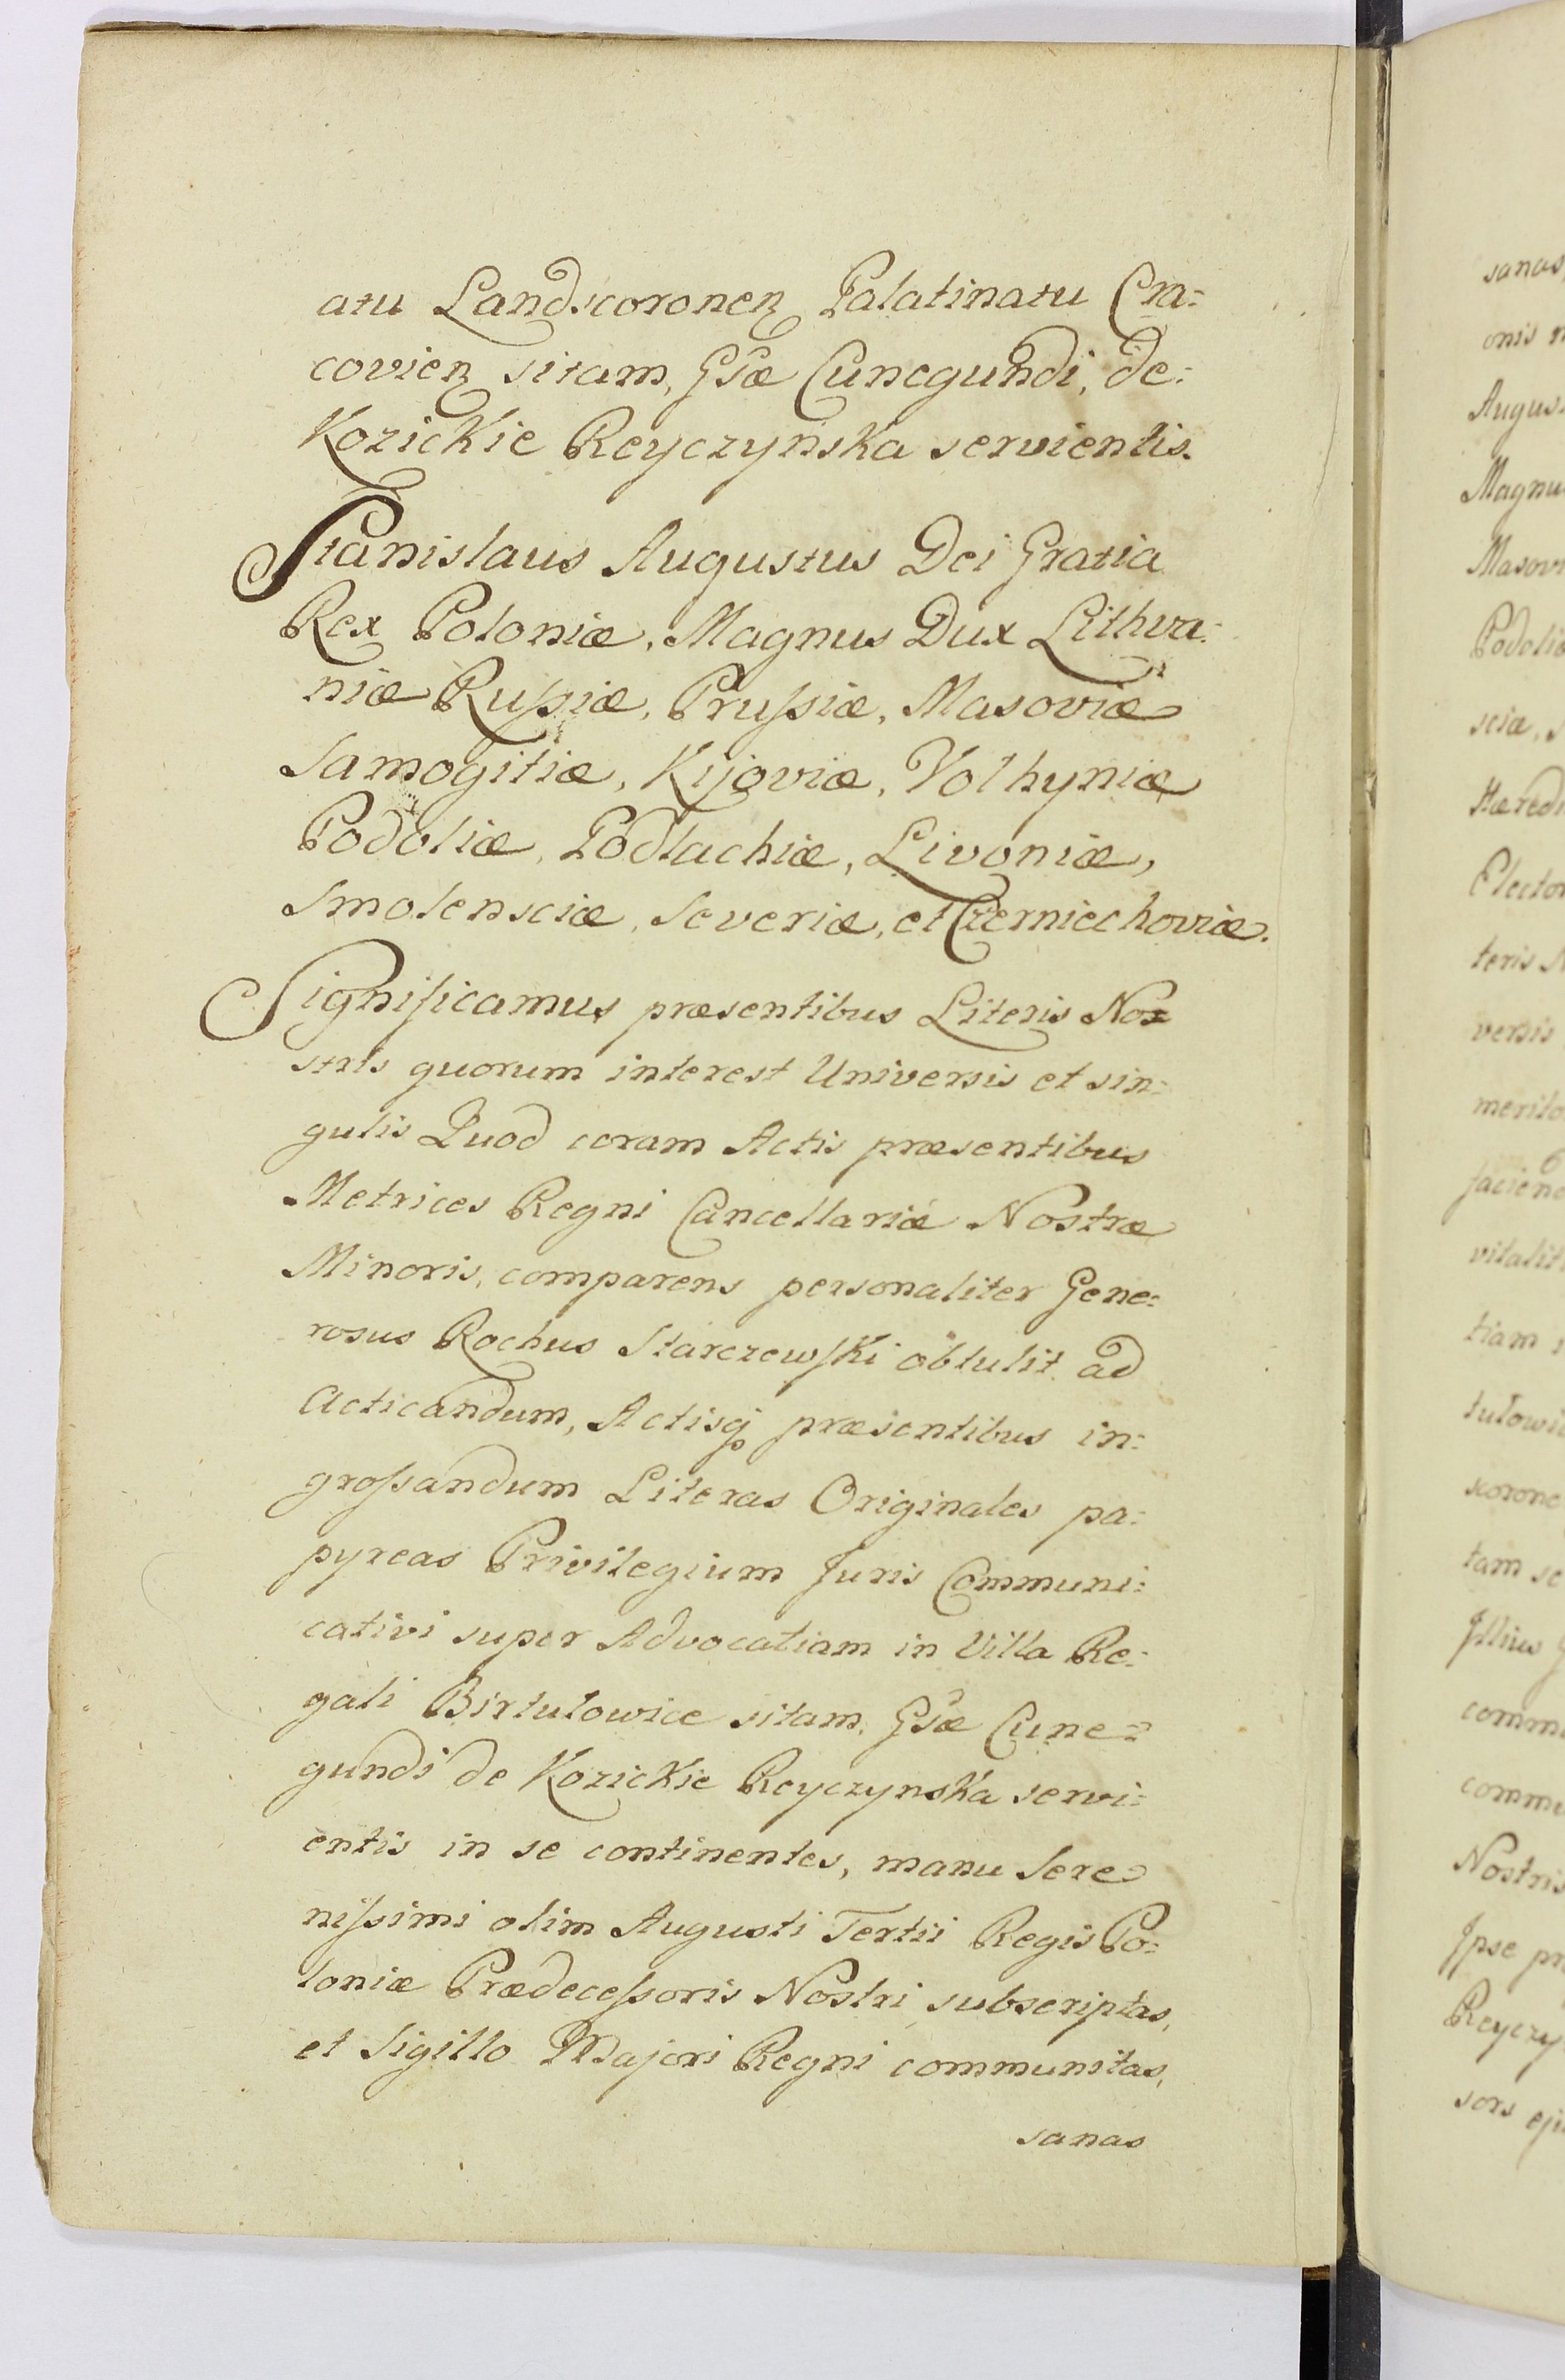 atu Landscoronen Palatinatu Cra:
covien sitam, Gsæ Cunegundi, de:
Kozickie Reyczyńska servientis.
Stanislaus Augustus Dei Gratia
Rex Poloniæ, Magnus Dux Lithva:
niæ Russiæ, Prussiæ, Masoviæ
Samogitiæ, Kijoviæ, Volhyniæ
Podoliæ, Podlachiæ, Livoniæ,
Smolensciæ, Severiæ, et Czerniechoviæ.
Significamus præsentibus Literis No=
stris quorum interest Universis et sin:
gulis Quod coram Actis præsentibus
Metrices Regni Cancellariæ Nostræ
Minoris, comparens personaliter Gene:
rosus Rochus Starczewski obtulit ad
Acticandum, Actisq præsentibus in:
grossandum Literas Originales pa:
pyreas Privilegium Juris Communi:
cativi super Advocatiam in Villa Re:
gali Birtulowice sitam, Gsæ Cune=
gundi de Kozickie Reyczynska servi:
entis in se continentes, manu Sere=
nissimi olim Augusti Tertii Regis Po:
loniæ Prædecessoris Nostri subscriptas,
et Sigillo Majori Regni communitas,
sanas
sanas
onis
Augus.
Magnu
Masovi
Podoliæ
sciæ,
Hæredi
Elector
teris N
versis
merito
faciend
vitalit
tiam
tulowic
scorone
tam se
Illius
commu
commu
Nostris
Ipse pr
Reyczy
sors eju